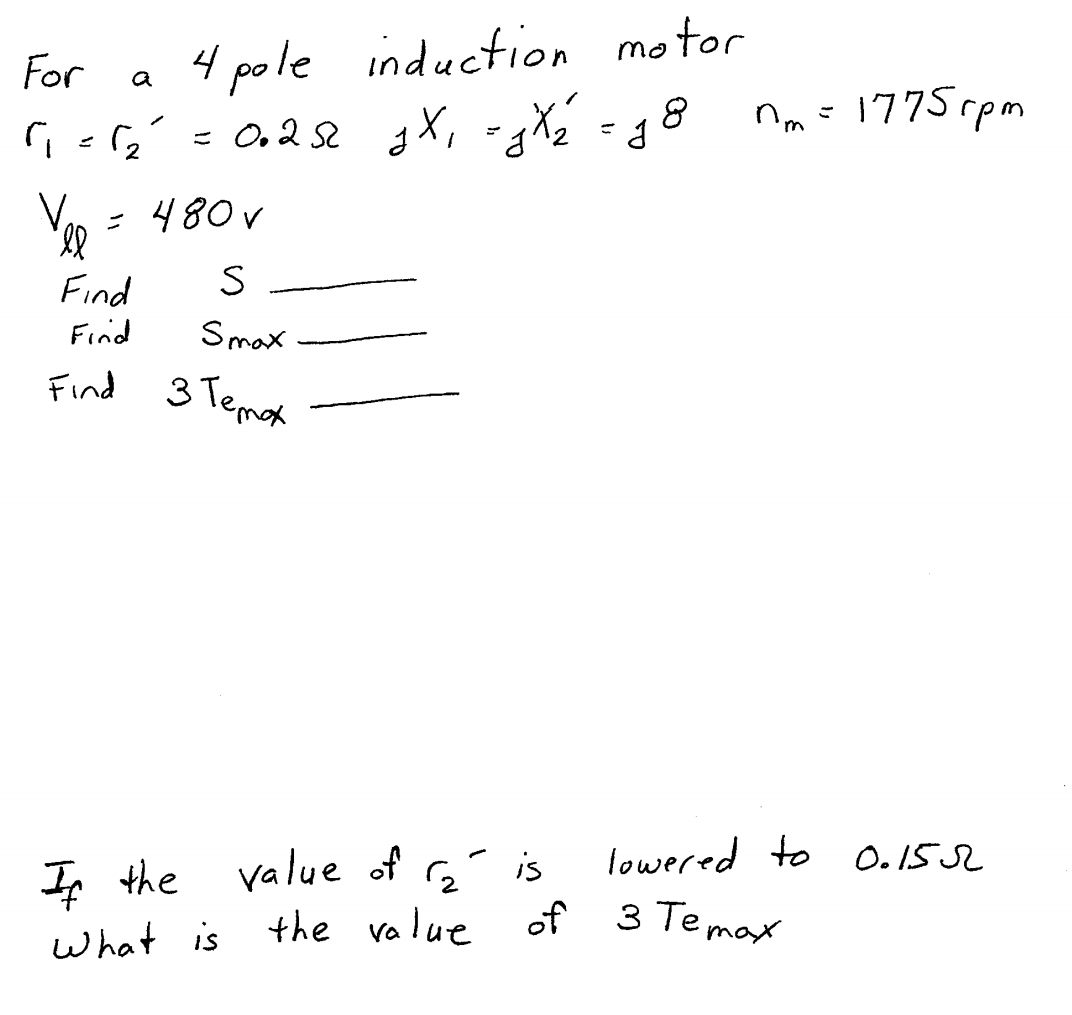 For a 4 pole induction motor
r₁ = r₂′ = 0.2Ω jX₁ = jX₂′ = j8 nm = 1775rpm
Vll = 480v
Find S ____
Find Smax ____
Find 3 Temax ____
If the value of r₂′ is lowered to 0.15Ω
What is the value of 3 Temax